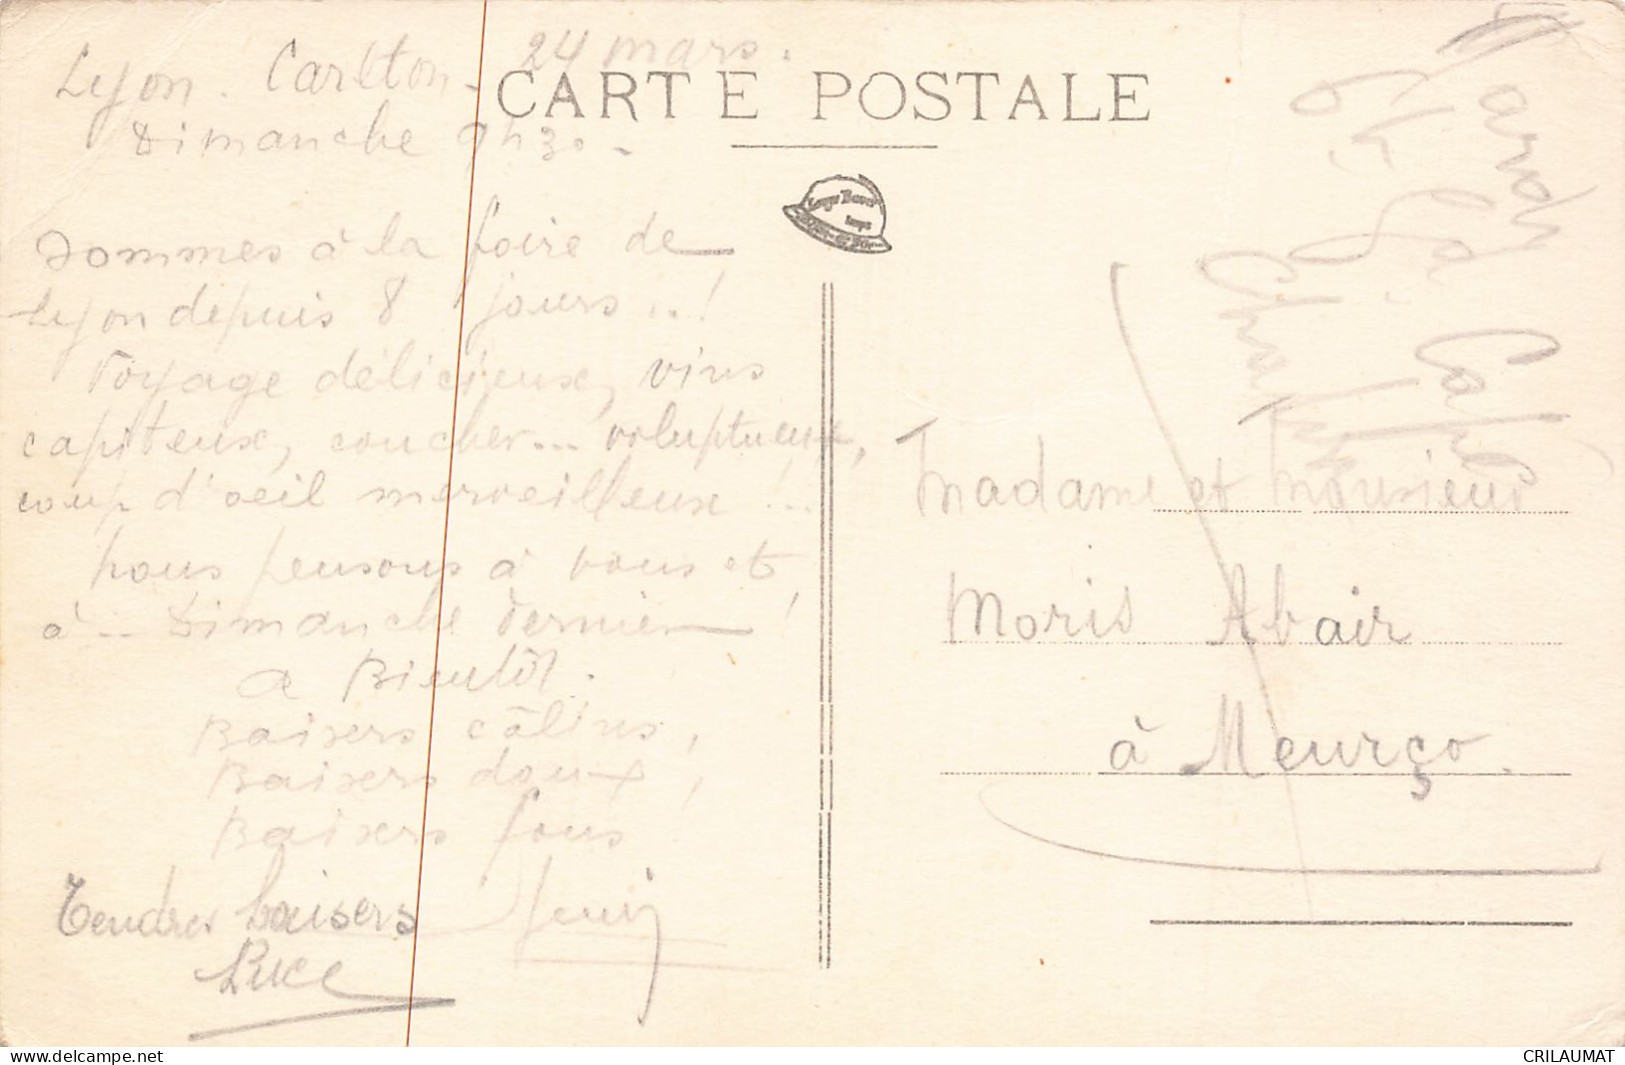 Lyon. Carlton. 24 mars.
Dimanche 9h30.
CARTE POSTALE
Sommes à la foire de
Lyon depuis 8 jours..!
Voyage délicieux, vins
capiteux, coucher... voluptueux,
coup d'oeil merveilleux!..
nous pensons à vous et
à... Dimanche dernier!
a Bientôt.
Baisers câlins,
Baisers doux,
Baisers fous!
Tendres baisers
Luce
Mardi
6h
Café
Madame et Monsieur
Moris Abair
à Meurço.
www.delcampe.net
CRILAUMAT